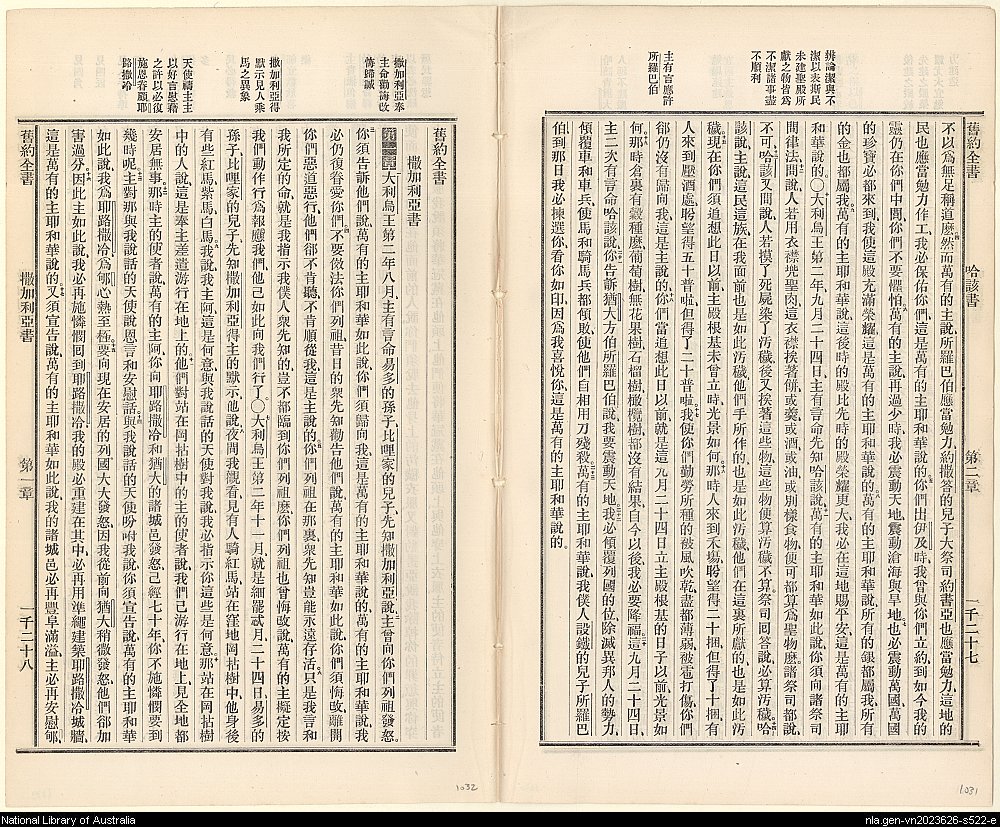 舊約全書 哈該書 第二章 一千二十七
辨論潔與不
潔以表斯民
未建聖殿所
獻之物皆爲
不潔諸事盡
不順利
主有言應許
所羅巴伯
不以爲無足稱道麼然而萬有的主說所羅巴伯應當勉力約撒答的兒子大祭司約書亞也應當勉力這地的
民也應當勉力作工我必保佑你們這是萬有的主耶和華說的你們出伊及時我曾與你們立約到如今我的
靈仍在你們中間你們不要懼怕萬有的主說再過少時我必震動天地震動滄海與旱地也必震動萬國萬國
的珍寶必都來到我使這殿充滿榮耀這是萬有的主耶和華說的萬有的主耶和華說所有的銀都屬我所有
的金也都屬我萬有的主耶和華說這後時的殿比先時的殿榮耀更大我必在這地賜平安這是萬有的主耶
和華說的〇大利烏王第二年九月二十四日主有言命先知哈該說萬有的主耶和華如此說你須向諸祭司
問律法問說人若用衣襟兜聖肉這衣襟挨著餅或羹或酒或油或別樣食物便可都算爲聖物麼諸祭司都說
不可哈該又問說人若摸了死屍染了汚穢後又挨著這些物這些物便算汚穢不算祭司回答說必算汚穢哈
該說主說這民這族在我面前也是如此汚穢他們手所作的也是如此汚穢他們在這裏所獻的也是如此汚
穢現在你們須追想此日以前主殿根基未曾立時光景如何那時人來到禾塲盼望得二十捆但得了十捆有
人來到壓酒處盼望得五十普啦但得了二十普啦我使你們勤勞所種的被風吹乾盡都薄弱被雹打傷你們
卻仍沒有歸向我這是主說的你們當追想此日以前就是這九月二十四日立主殿根基的日子以前光景如
何那時倉裏有穀種麼葡萄樹無花果樹石榴樹橄欖樹都沒有結果自今以後我必要降福這九月二十四日
主二次有言命哈該說你告訴猶大方伯所羅巴伯說我要震動天地我必傾覆列國的位除滅異邦人的勢力
傾覆車和車兵使馬和騎馬兵都傾敗使他們自相用刀殘殺萬有的主耶和華說我僕人設鐵的兒子所羅巴
伯到那日我必揀選你看你如印因爲我喜悅你這是萬有的主耶和華說的
1031
撒加利亞奉
主命勸誨改
悔歸誠
撒加利亞得
默示見人乘
馬之異象
天使禱主主
以好言慰藉
之許以必復
施恩眷顧耶
路撒冷
舊約全書
撒加利亞書
第一章大利烏王第二年八月主有言命易多的孫子比哩家的兒子先知撒加利亞說主曾向你們列祖發怒
你須告訴他們說萬有的主耶和華如此說你們須歸向我這是萬有的主耶和華說的萬有的主耶和華說我
必仍復眷愛你們不要倣法你們列祖昔日的衆先知勸告他們說萬有的主耶和華如此說你們須悔改離開
你們惡道惡行他們都不肯聽不肯順從我這是主說的你們列祖在那裏衆先知豈能永遠存活只是我言和
我所定的命就是我指示我僕人衆先知的豈不都臨到你們列祖麼你們列祖也曾悔改說萬有的主擬定按
我們動作行爲報應我們他已如此向我們行了〇大利烏王第二年十一月就是細罷忒月二十四日易多的
孫子比哩家的兒子先知撒加利亞得主的默示他說夜間我觀看見有人騎紅馬站在窪地岡拈樹中他身後
有些紅馬紫馬白馬我說我主阿這是何意與我說話的天使對我說我必指示你這些是何意那站在岡拈樹
中的人說這是奉主差遣游行在地上的他們對站在岡拈樹中的主的使者說我們已游行在地上見全地都
安居無事那時主的使者說萬有的主阿你向耶路撒冷和猶大的諸城邑發怒已經七十年你不施憐憫要到
幾時呢主對那與我說話的天使說恩言和安慰話與我說話的天使吩咐我說你須宣告說萬有的主耶和華
如此說我爲耶路撒冷爲郇心熱至極要向現在安居的列國大大發怒因我從前向猶大稍微發怒他們卻加
害過分因此主如此說我必再施憐憫回到耶路撒冷我的殿必重建在其中必再用準繩建築耶路撒冷城牆
這是萬有的主耶和華說的又須宣告說萬有的主耶和華如此說我的諸城邑必再豐阜滿溢主必再安慰郇
舊約全書 撒加利亞書 第一章 一千二十八
1032
National Library of Australia
nla.gen-vn2023626-s522-e